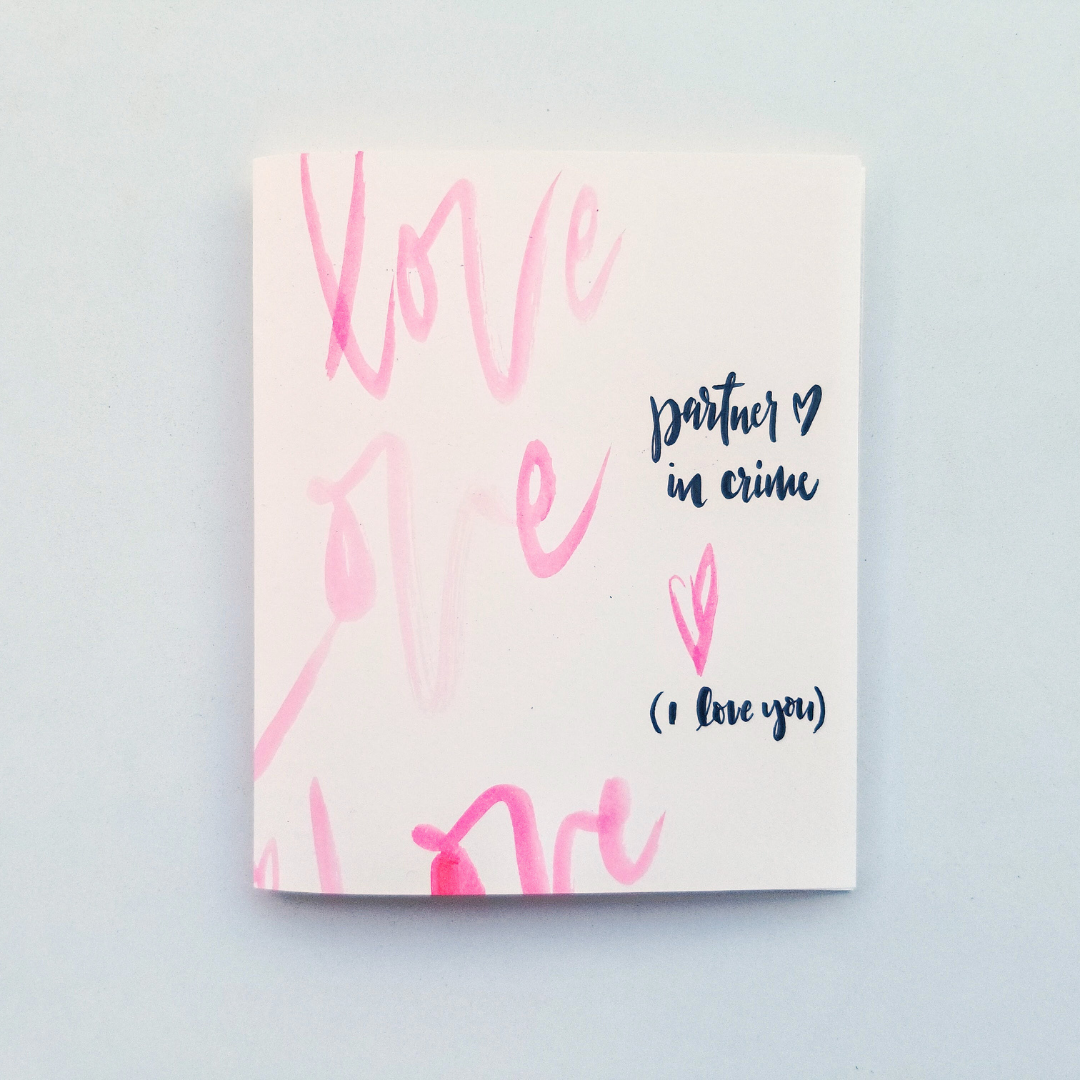 love
ove
partner ♡
in crime
(i love you)
love